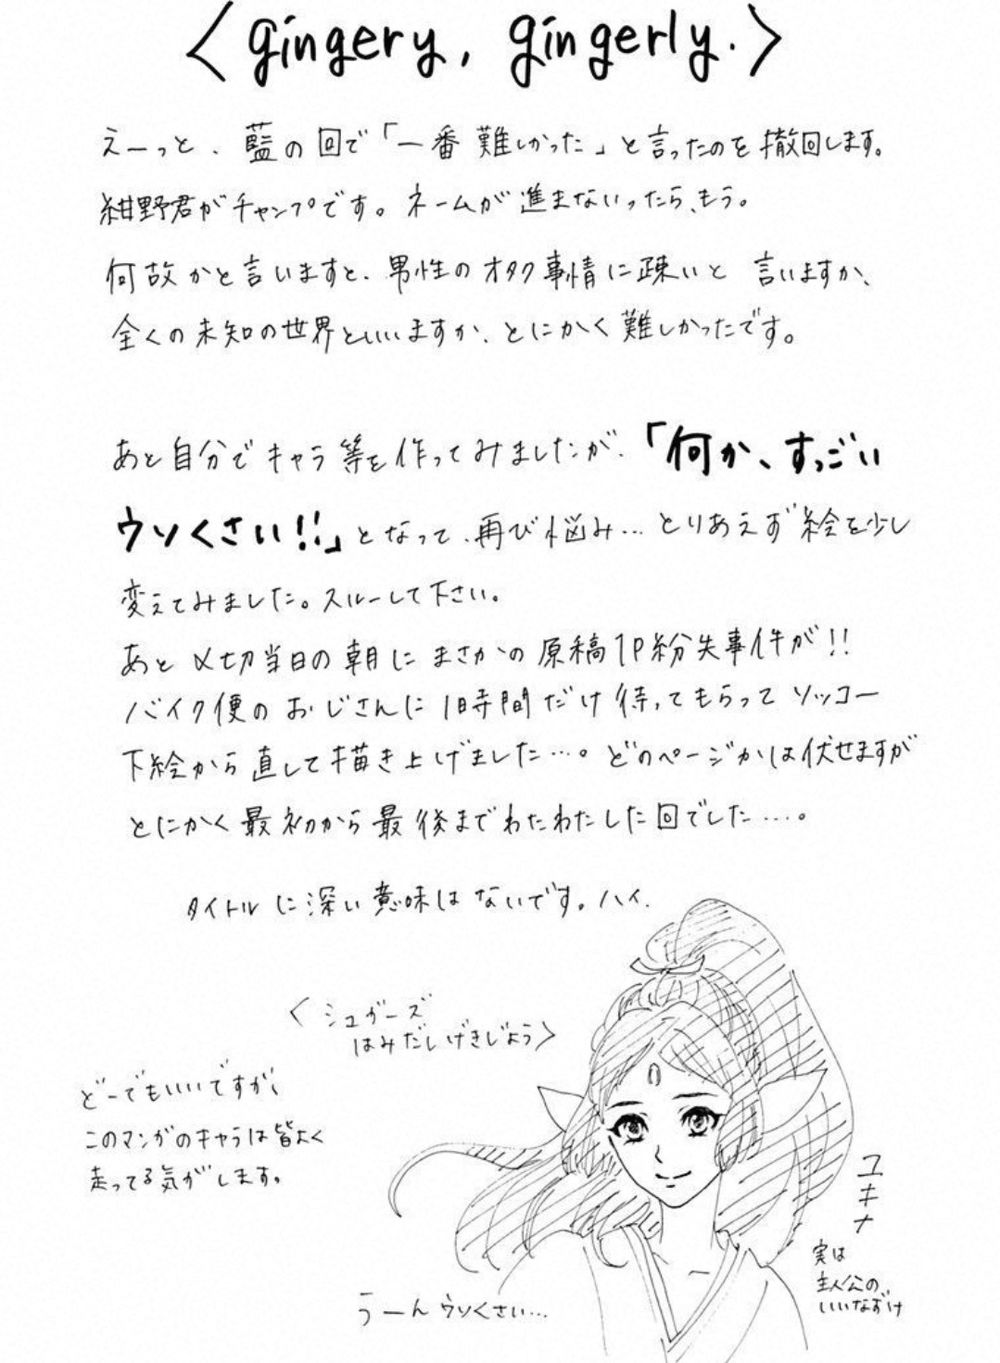 〈gingery, gingerly.〉
えーっと、藍の回で「一番難しかった」と言ったのを撤回します。
紺野君がチャンプです。ネームが進まないったら、もう。
何故かと言いますと、男性のオタク事情に疎いと言いますか、
全くの未知の世界といいますか、とにかく難しかったです。
あと自分でキャラ等を作ってみましたが、「何か、すっごい
ウソくさい!!」となって、再び悩み…とりあえず絵を少し
変えてみました。スルーして下さい。
あと〆切当日の朝にまさかの原稿1P紛失事件が!!
バイク便のおじさんに1時間だけ待ってもらってソッコー
下絵から直して描き上げました…。どのページかは伏せますが
とにかく最初から最後までわたわたした回でした…。
タイトルに深い意味はないです。ハイ.
〈シュガーズ
はみだしげきじょう〉
どーでもいいですが、
このマンガのキャラは皆よく
走ってる気がします。
ユキナ
実は
主人公の
いいなずけ
うーんウソくさい…